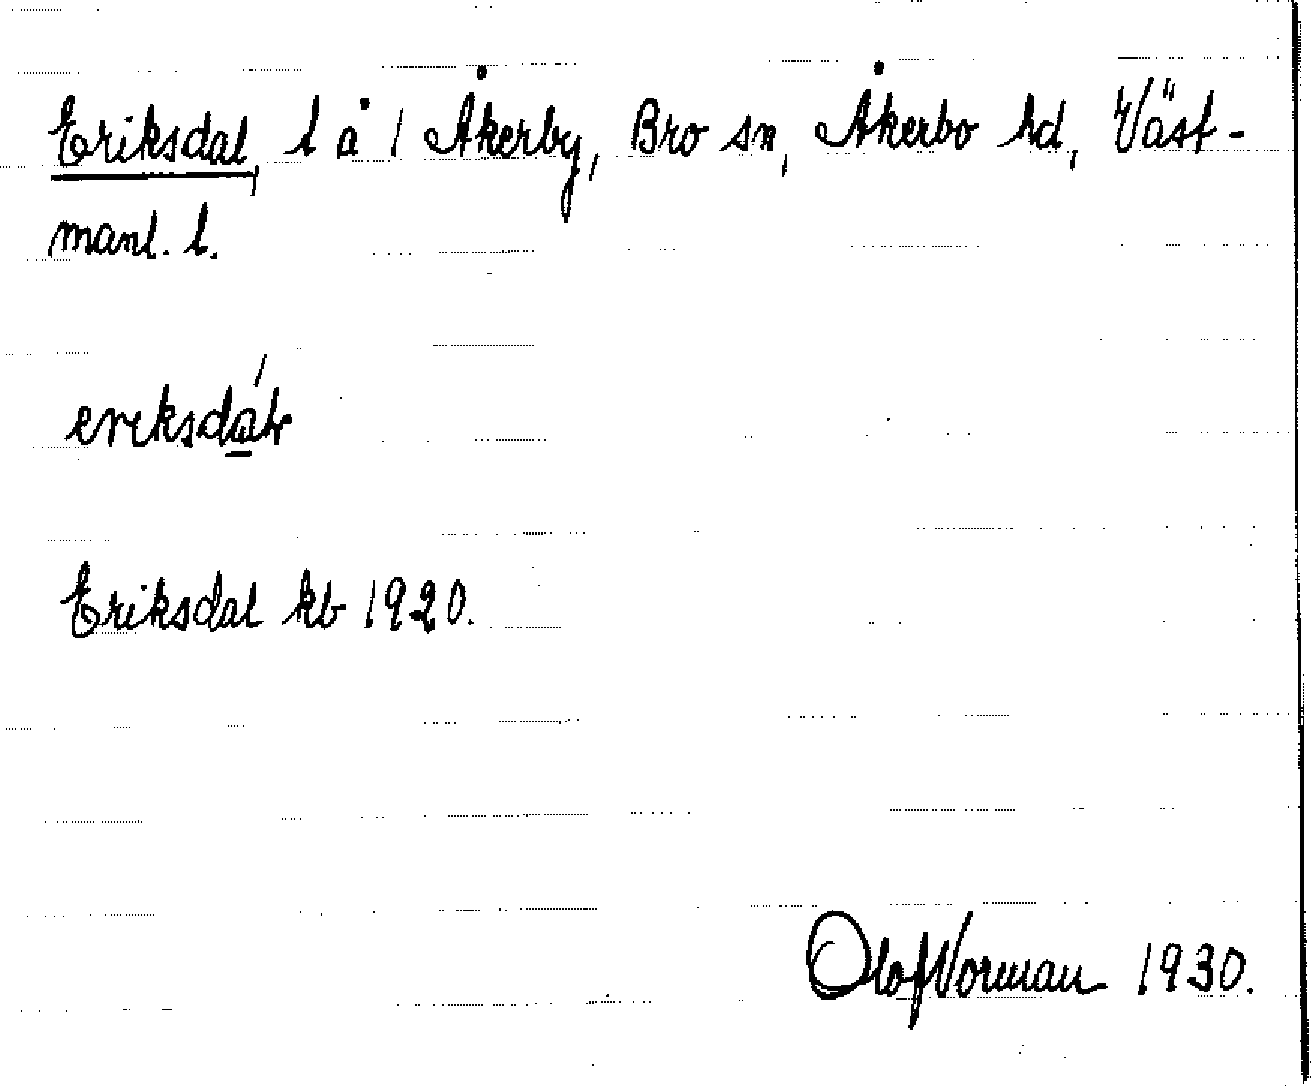 Eriksdal, l å 1 Åkerby, Bro sn, Åkerbo hd, Väst-
manl. l.
ereksdáɩ̵
Eriksdal kb 1920.
Olof Norman 1930.